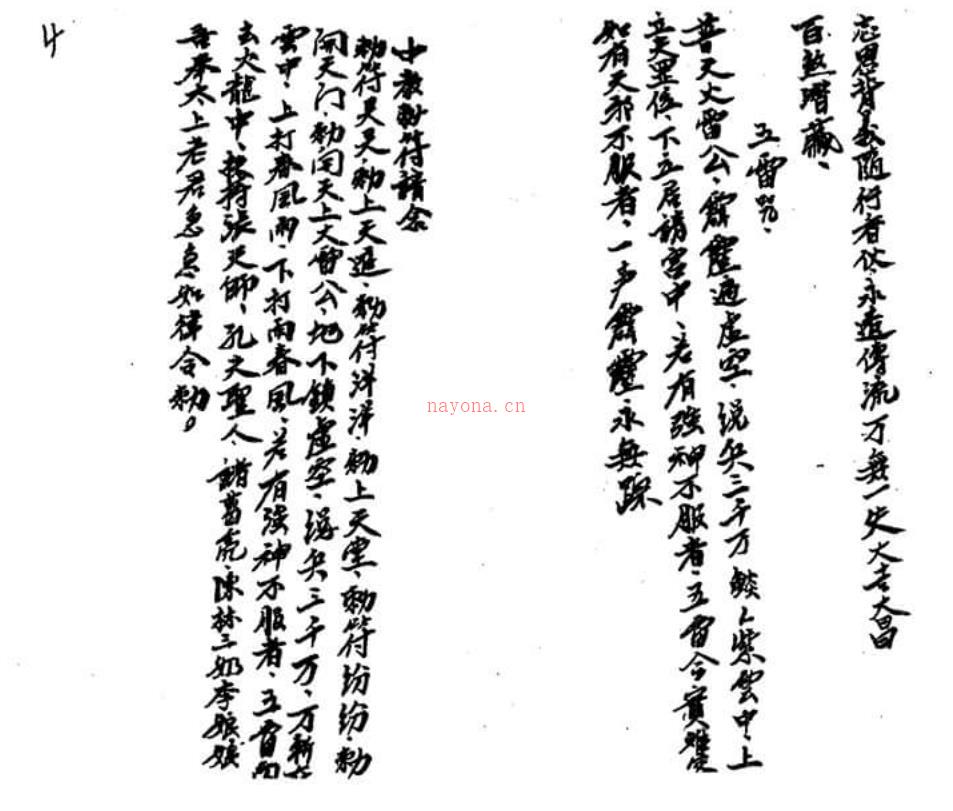 忘恩背義隨行者伙、永遠傳流万無一失大吉大昌
百煞潛藏、
五雷咒、
普天大雷公、霹靂通虛空、統兵三千万 紫雲中、上
立天罡位、下立居諸宮中、若有強神不服者、五雷令
如有天邪不服者、一声霹靂永無踪
中教勅符請念
勅符旲旲、勅上天遥、勅符洋洋、勅上天堂、勅符纷纷、勅
開天门、勅问天上大雷公、地下鎖虛空、統兵三千万、万
雲中、上打春風雨、下打雨春風、若有強神不服者、五雷
去火龍中、扶持張天師、孔夫聖人、諸葛亮、陳林三奶李娘娘
吾奉太上老君急急如律令勅。
4
nayona.cn